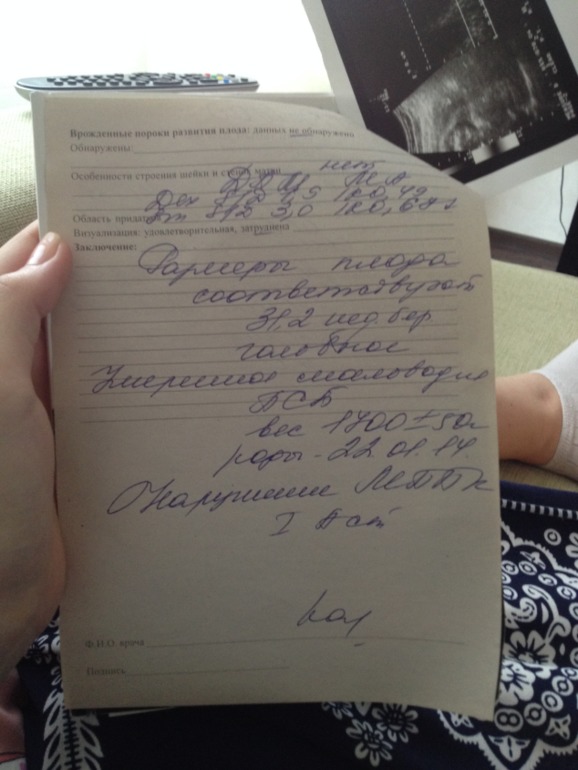 Врожденные пороки развития плода: данных не обнаружено
Обнаружены:
нет
Особенности строения шейки и стенок матки
Область придат
Визуализация: удовлетворительная, затруднена
Заключение:
Размеры плода
соответствуют
31,2 нед. бер
головное
Умеренное маловодие
вес 1700 ± 50г
роды - 22.01.14.
Нарушение МППК
I А ст
Ф.И.О. врача
Подпись